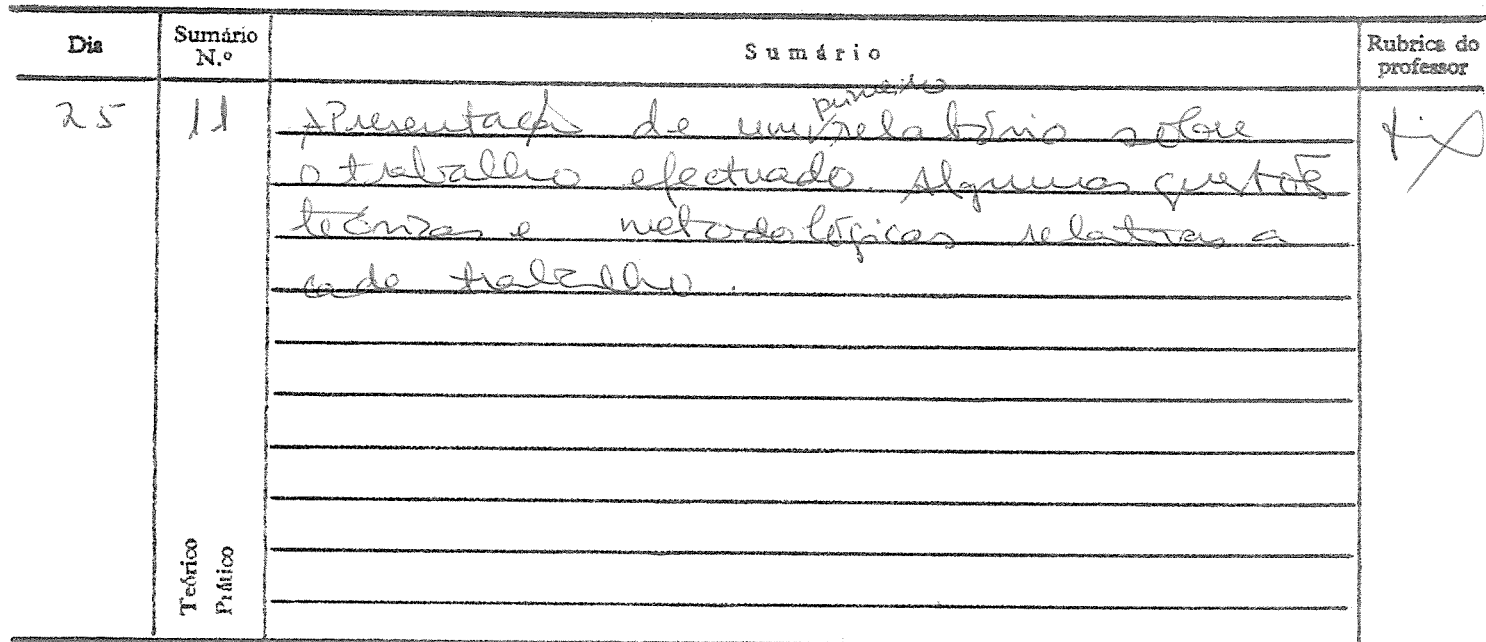 Dia Sumário N.º Sumário Rubrica do professor
25 11 Apresentação de um primeiro relatório sobre
o trabalho efectuado. Algumas questões
técnicas e metodológicas relativas a
cada trabalho.
Teórico
Prático